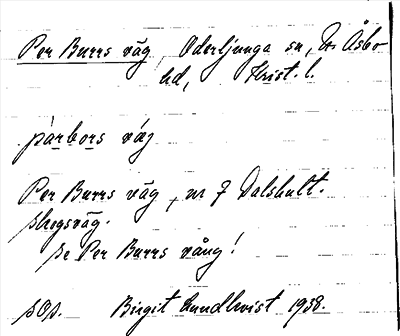 Per Burrs väg, Oderljunga sn, N. Åsbo
hd, Krist. l.
parbors väg
Per Burrs väg, nr 7 Dalshult.
skogsväg.
se Per Burrs vång!
Birgit Lundkvist 1938.